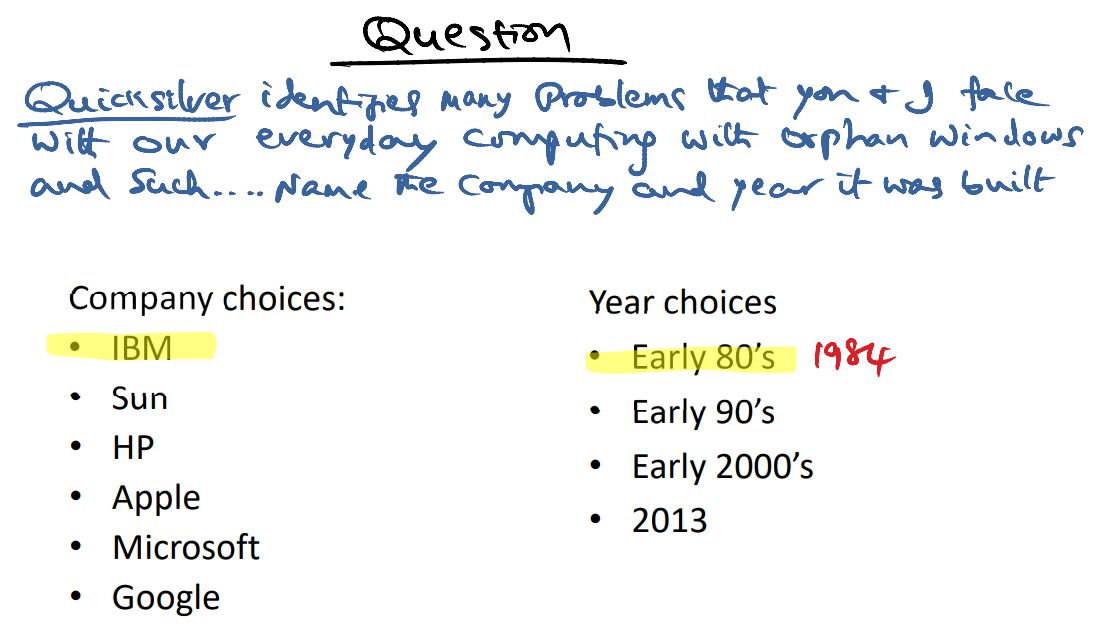 Question
Quicksilver identifies many Problems that you & I face
with our everyday computing with orphan windows
and such.... Name the Company and year it was built
Company choices:
• IBM
• Sun
• HP
• Apple
• Microsoft
• Google
Year choices
• Early 80's 1984
• Early 90's
• Early 2000's
• 2013